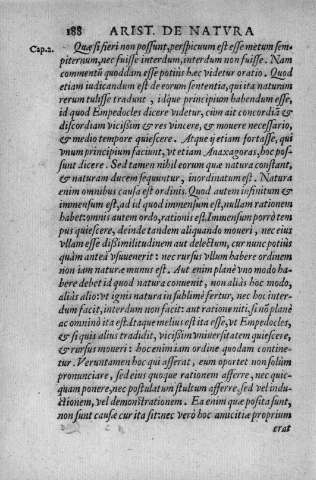 188 ARIST. DE NATVRA
Cap.2. Quæ si fieri non possunt, perspicuum est esse motum sem
piternum, nec fuisse interdum, interdum non fuisse. Nam
commentũ quoddam esse potiùs hæc videtur oratio. Quod
etiam iudicandum est de eorum sententia, qui ita naturam
rerum tulisse tradunt, idque principium habendum esse,
id quod Empedocles dicere videtur, cùm ait concordiã &
discordiam vicißim & res vincere, & mouere necessario,
& medio tempore quiescere. Atque ij etiam fortasse, qui
vnum principium faciunt, vt etiam Anaxagoras, hoc pos-
sunt dicere. Sed tamen nihil eorum quæ natura constant,
& naturam ducem sequuntur, inordinatum est. Natura
enim omnibus causa est ordinis. Quod autem infinitum &
immensum est, ad id quod immensum est, nullam rationem
habet: omnis autem ordo, rationis est. Immensum porrò tem
pus quiescere, deinde tandem aliquando moueri, nec eius
vllam esse dißimilitudinem aut delectum, cur nunc potiùs
quàm anteà vsuuenerit: nec rursus vllum habere ordinem
non iam naturæ munus est. Aut enim planè vno modo ha-
bere debet id quod natura conuenit, non aliàs hoc modo,
aliàs alio: vt ignis natura in sublimè fertur, nec hoc inter-
dum facit, interdum non facit: aut ratione niti, si nõ planè
ac omninò ita est. Itaque melius est ita esse, vt Empedocles,
& si quis alius tradidit, vicißim vniuersitatem quiescere,
& rursus moueri: hoc enim iam ordine quodam contine-
tur. Veruntamen hoc qui afferat, eum oportet non solùm
pronunciare, sed eius quoque rationem afferre, nec quic-
quam ponere, nec postulatum stultum afferre, sed vel indu-
ctionem, vel demonstrationem. Ea enim quæ posita sunt,
non sunt causæ cur ita sit: nec verò hoc amicitiæ proprium
erat